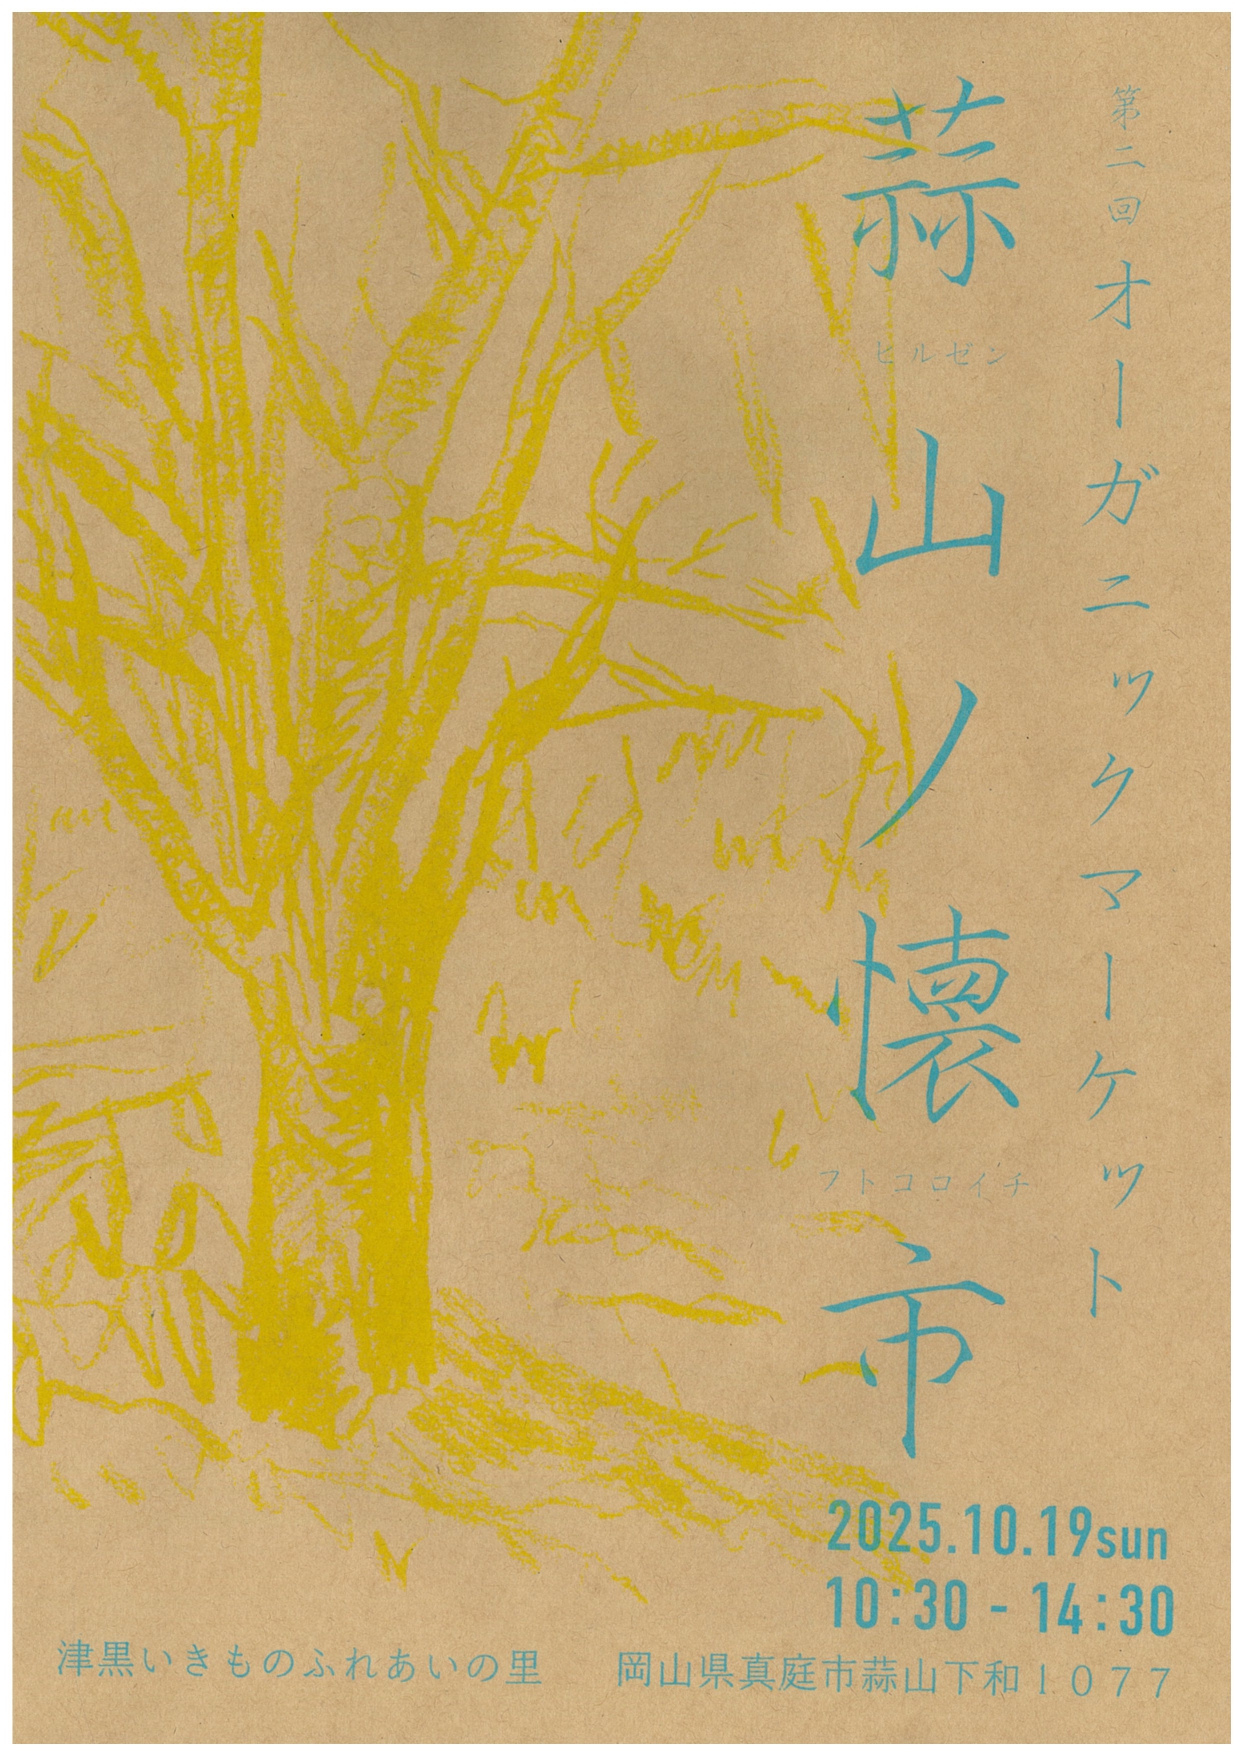 第二回オーガニックマーケット
蒜山ノ懐市
ヒルゼン
フトコロイチ
2025.10.19sun
10:30 - 14:30
津黒いきものふれあいの里
岡山県真庭市蒜山下和1077